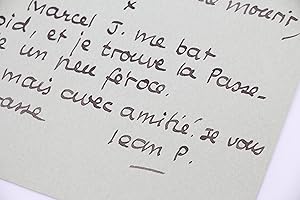 mourir,
x
Marcel J. me bat
oid, et je trouve la Passe-
e un peu féroce.
mais avec amitié. Je vous
asse
Jean P.